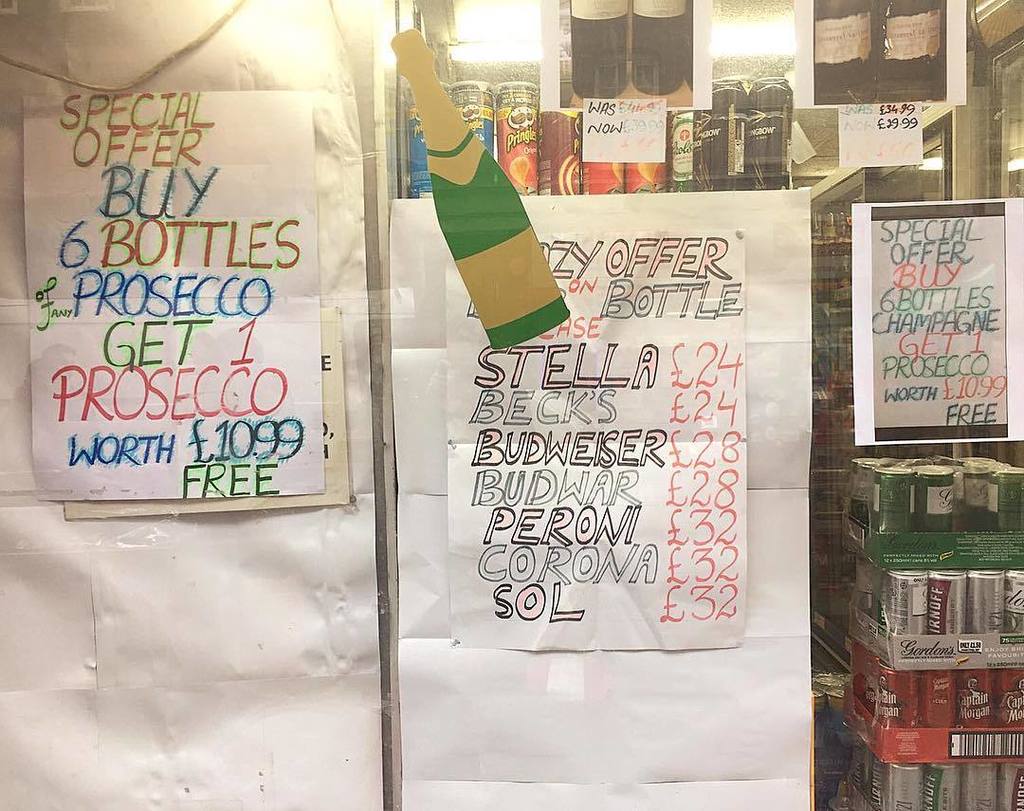 SPECIAL
OFFER
BUY
6 BOTTLES
of any PROSECCO
GET 1
PROSECCO
WORTH £10.99
FREE
ZY OFFER
ON
BOTTLE
CASE
STELLA £24
BECK'S £24
BUDWEISER £28
BUDWAR £28
PERONI £32
CORONA £32
SOL £32
Pringles
WAS £44.95
NOW £39.99
WAS £34.99
NOW £29.99
SPECIAL
OFFER
BUY
6 BOTTLES
CHAMPAGNE
GET 1
PROSECCO
WORTH £10.99
FREE
PERFECTLY MIXED
Gordon's
Captain
Morgan
Captain